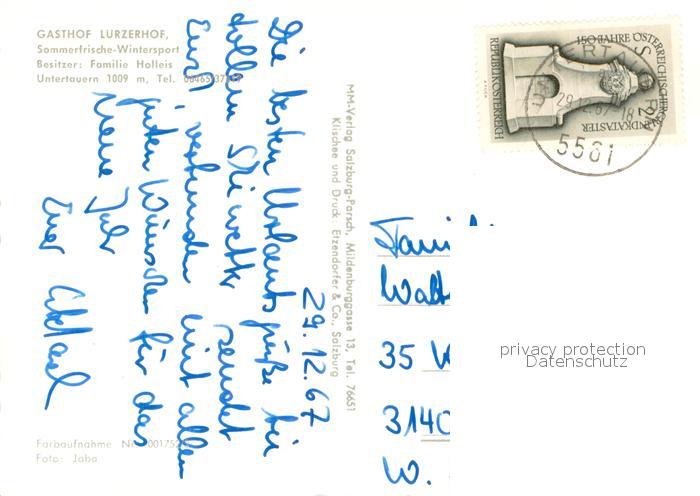 GASTHOF LURZERHOF,
Sommerfrische-Wintersport
Besitzer: Familie Holleis
Untertauern 1009 m, Tel.
29.12.67
Die besten Urlaubsgrüße bei
tollem Skiwetter sendet
Euch verbunden mit allen
guten Wünschen für das
neue Jahr
Euer
Farbaufnahme Nr. 001752
Foto: Jaba
MM-Verlag Salzburg-Parsch, Mildenburggasse 13, Tel. 76651
Klischee und Druck: Etzendorfer & Co., Salzburg
150 JAHRE ÖSTERREICHISCHER
GRUNDKATASTER
REPUBLIK ÖSTERREICH
29.12.67-18
5561
Fami
Walt
35
3140
W.
privacy protection
Datenschutz